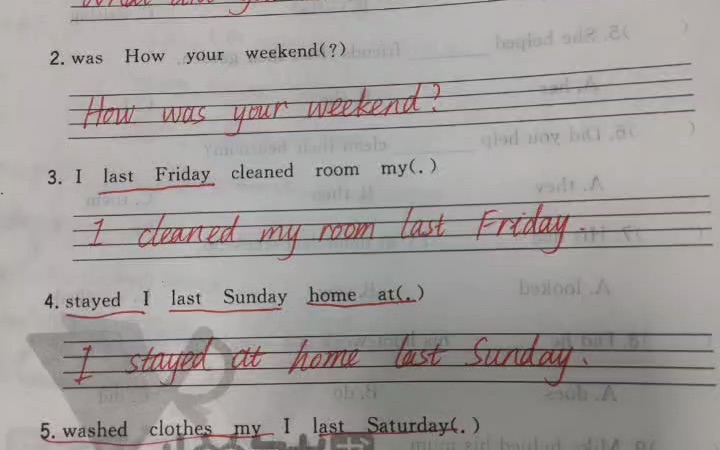 2. was How your weekend(?)
How was your weekend?
3. I last Friday cleaned room my(.)
I cleaned my room last Friday.
4. stayed I last Sunday home at(.)
I stayed at home last Sunday.
5. washed clothes my I last Saturday(.)